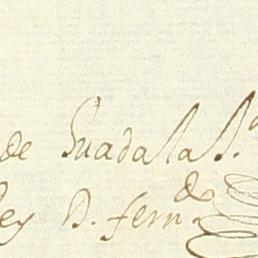 de Guadalaj.ª
Rey D. fern.do